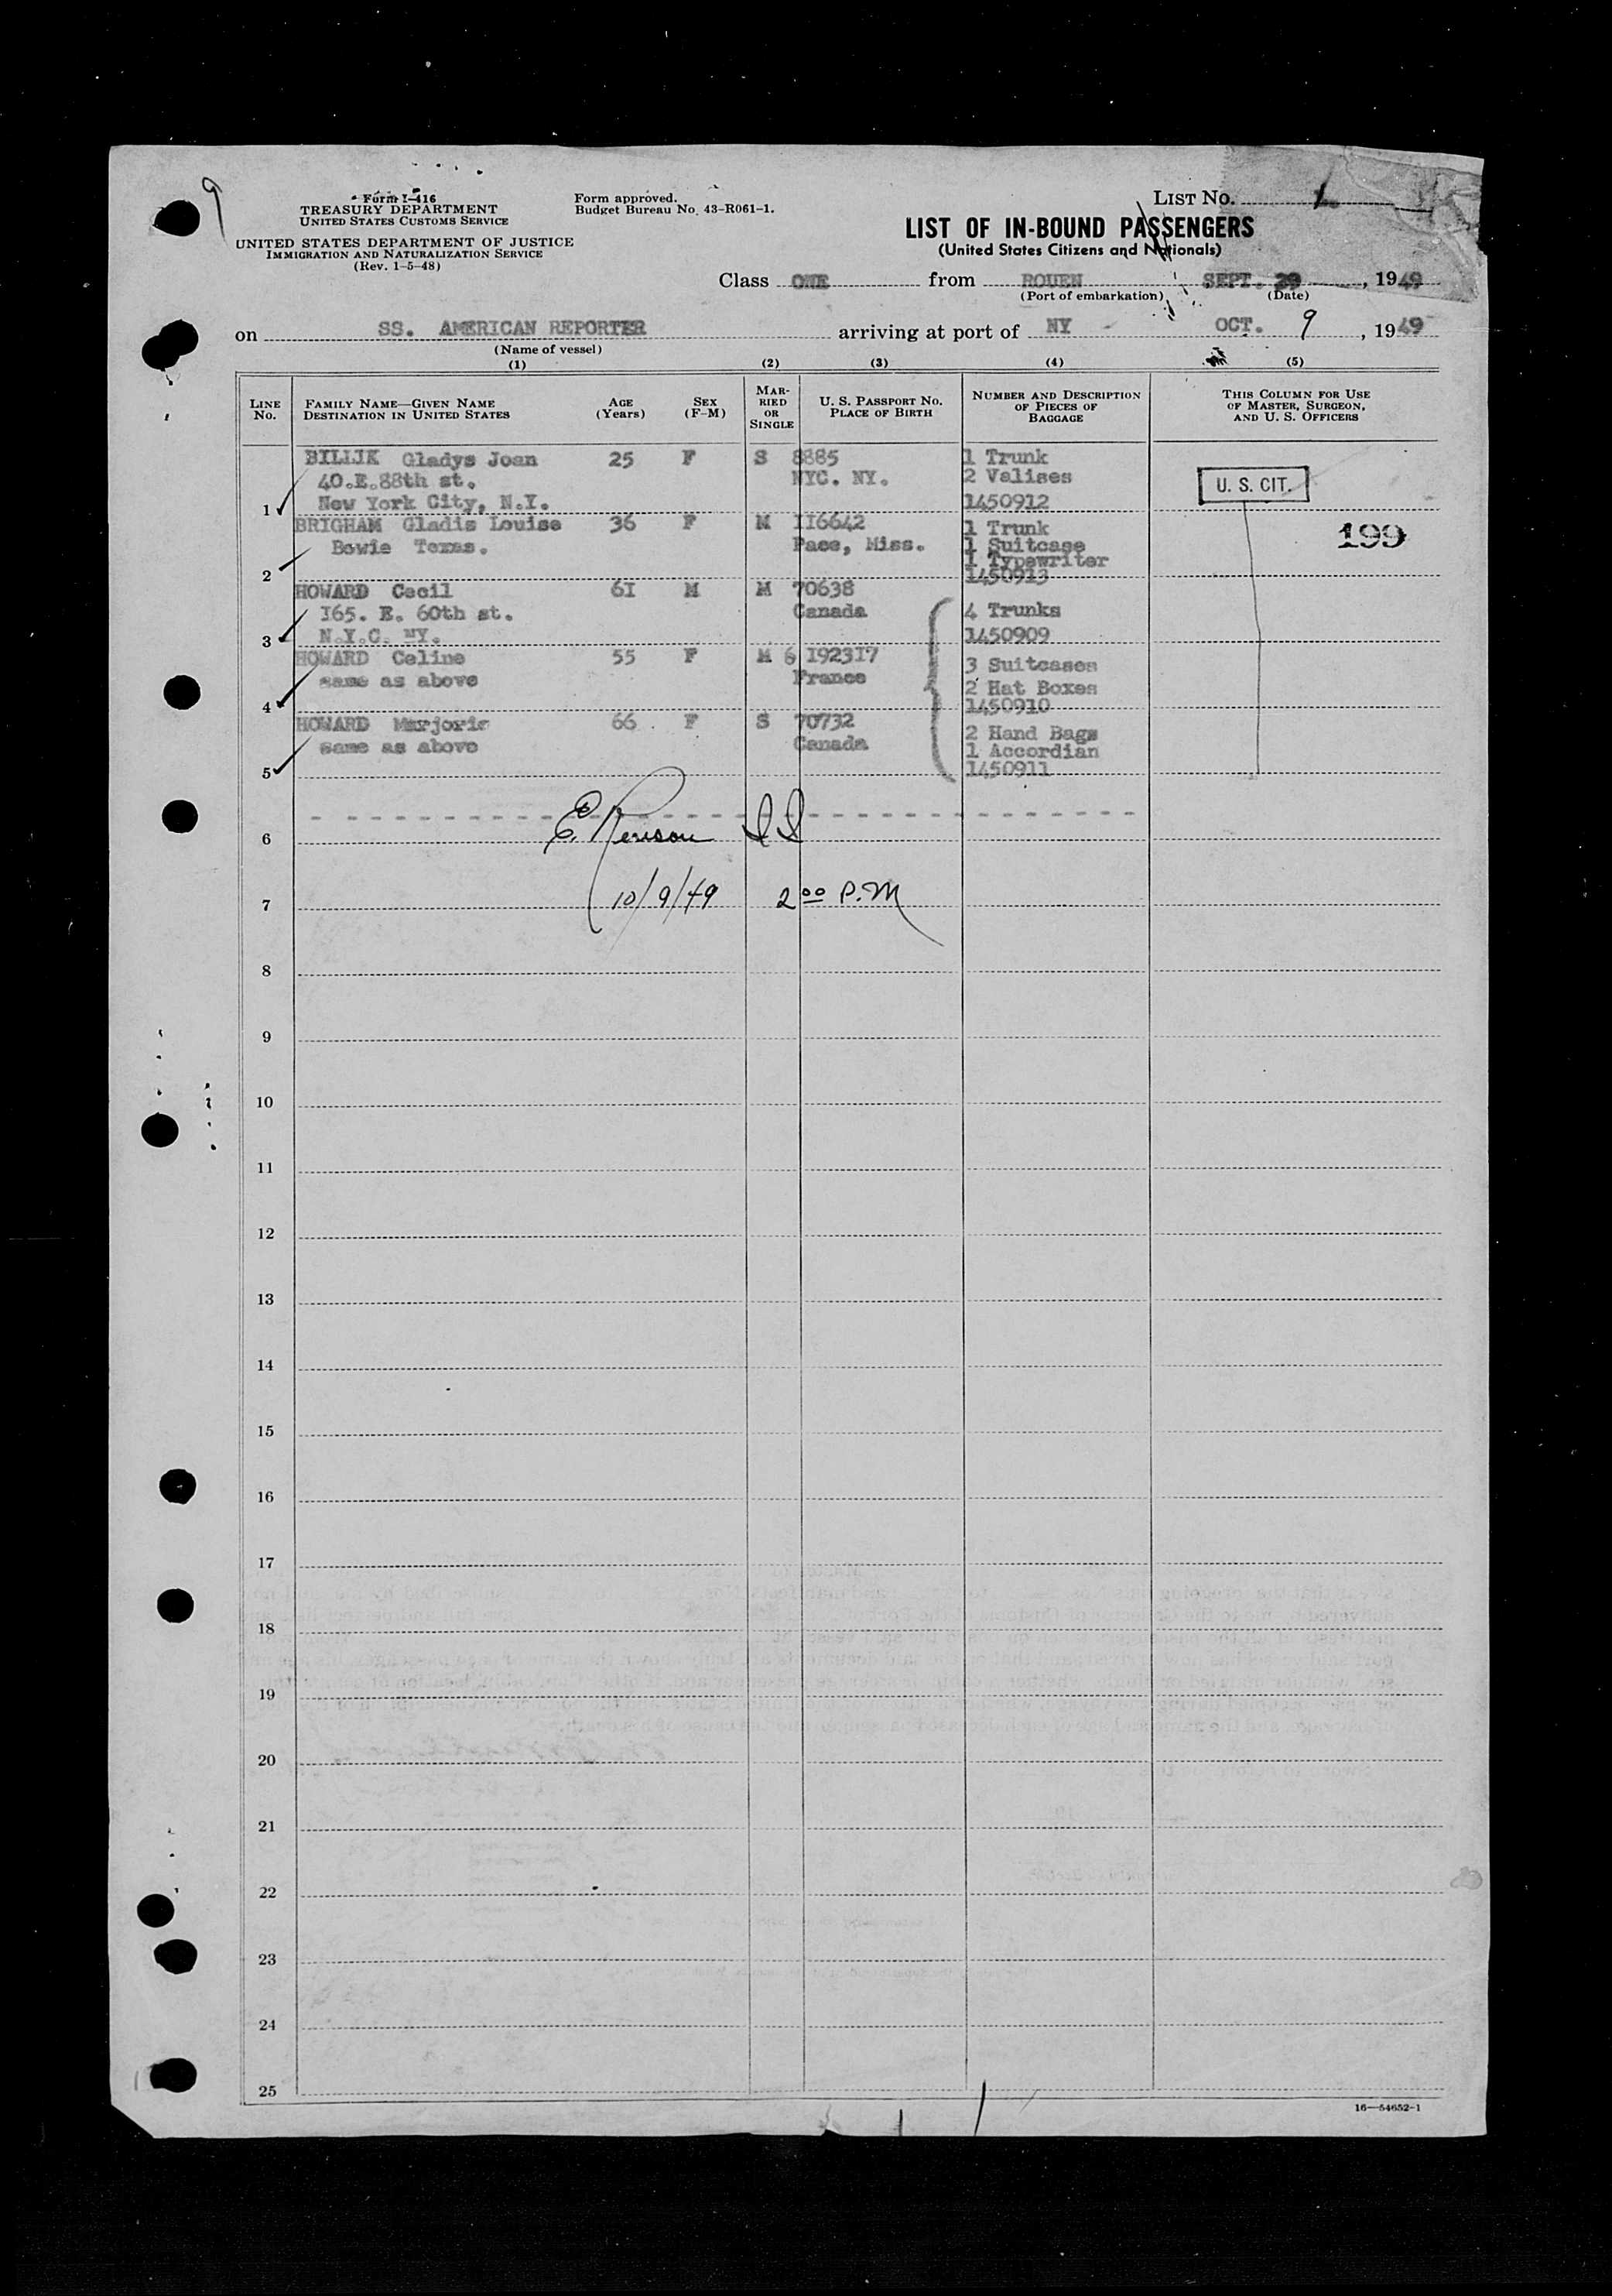 9
Form I-416
TREASURY DEPARTMENT
UNITED STATES CUSTOMS SERVICE
UNITED STATES DEPARTMENT OF JUSTICE
IMMIGRATION AND NATURALIZATION SERVICE
(Rev. 1-5-48)
Form approved.
Budget Bureau No. 43-R061-1.
LIST No. 1
LIST OF IN-BOUND PASSENGERS
(United States Citizens and Nationals)
Class ONE from ROUEN SEPT. 29, 1949
(Port of embarkation) (Date)
on SS. AMERICAN REPORTER arriving at port of NY OCT. 9, 1949
(Name of vessel)
(1) (2) (3) (4) (5)
LINE No. FAMILY NAME—GIVEN NAME DESTINATION IN UNITED STATES AGE (Years) SEX (F-M) MARRIED OR SINGLE U. S. PASSPORT No. PLACE OF BIRTH NUMBER AND DESCRIPTION OF PIECES OF BAGGAGE THIS COLUMN FOR USE OF MASTER, SURGEON, AND U. S. OFFICERS
BILIJK Gladys Joan 25 F S 8885 1 Trunk
40.E.88th st. NYC. NY. 2 Valises U. S. CIT.
1 New York City, N.Y. 1450912
BRIGHAM Gladis Louise 36 F M II6642 1 Trunk 199
Bowie Texas. Pace, Miss. 1 Suitcase
1 Typewriter
2 1450913
HOWARD Cecil 6I M M 70638
I65. E. 60th st. Canada 4 Trunks
3 N.Y.C. NY. 1450909
HOWARD Celine 55 F M 6 I923I7 3 Suitcases
same as above France 2 Hat Boxes
4 1450910
HOWARD Marjorie 66 F S 70732 2 Hand Bags
same as above Canada 1 Accordian
5 1450911
6 E. II
7 10/9/49 2 00 P.M
8
9
10
11
12
13
14
15
16
17
18
19
20
21
22
23
24
25
16—54652-1